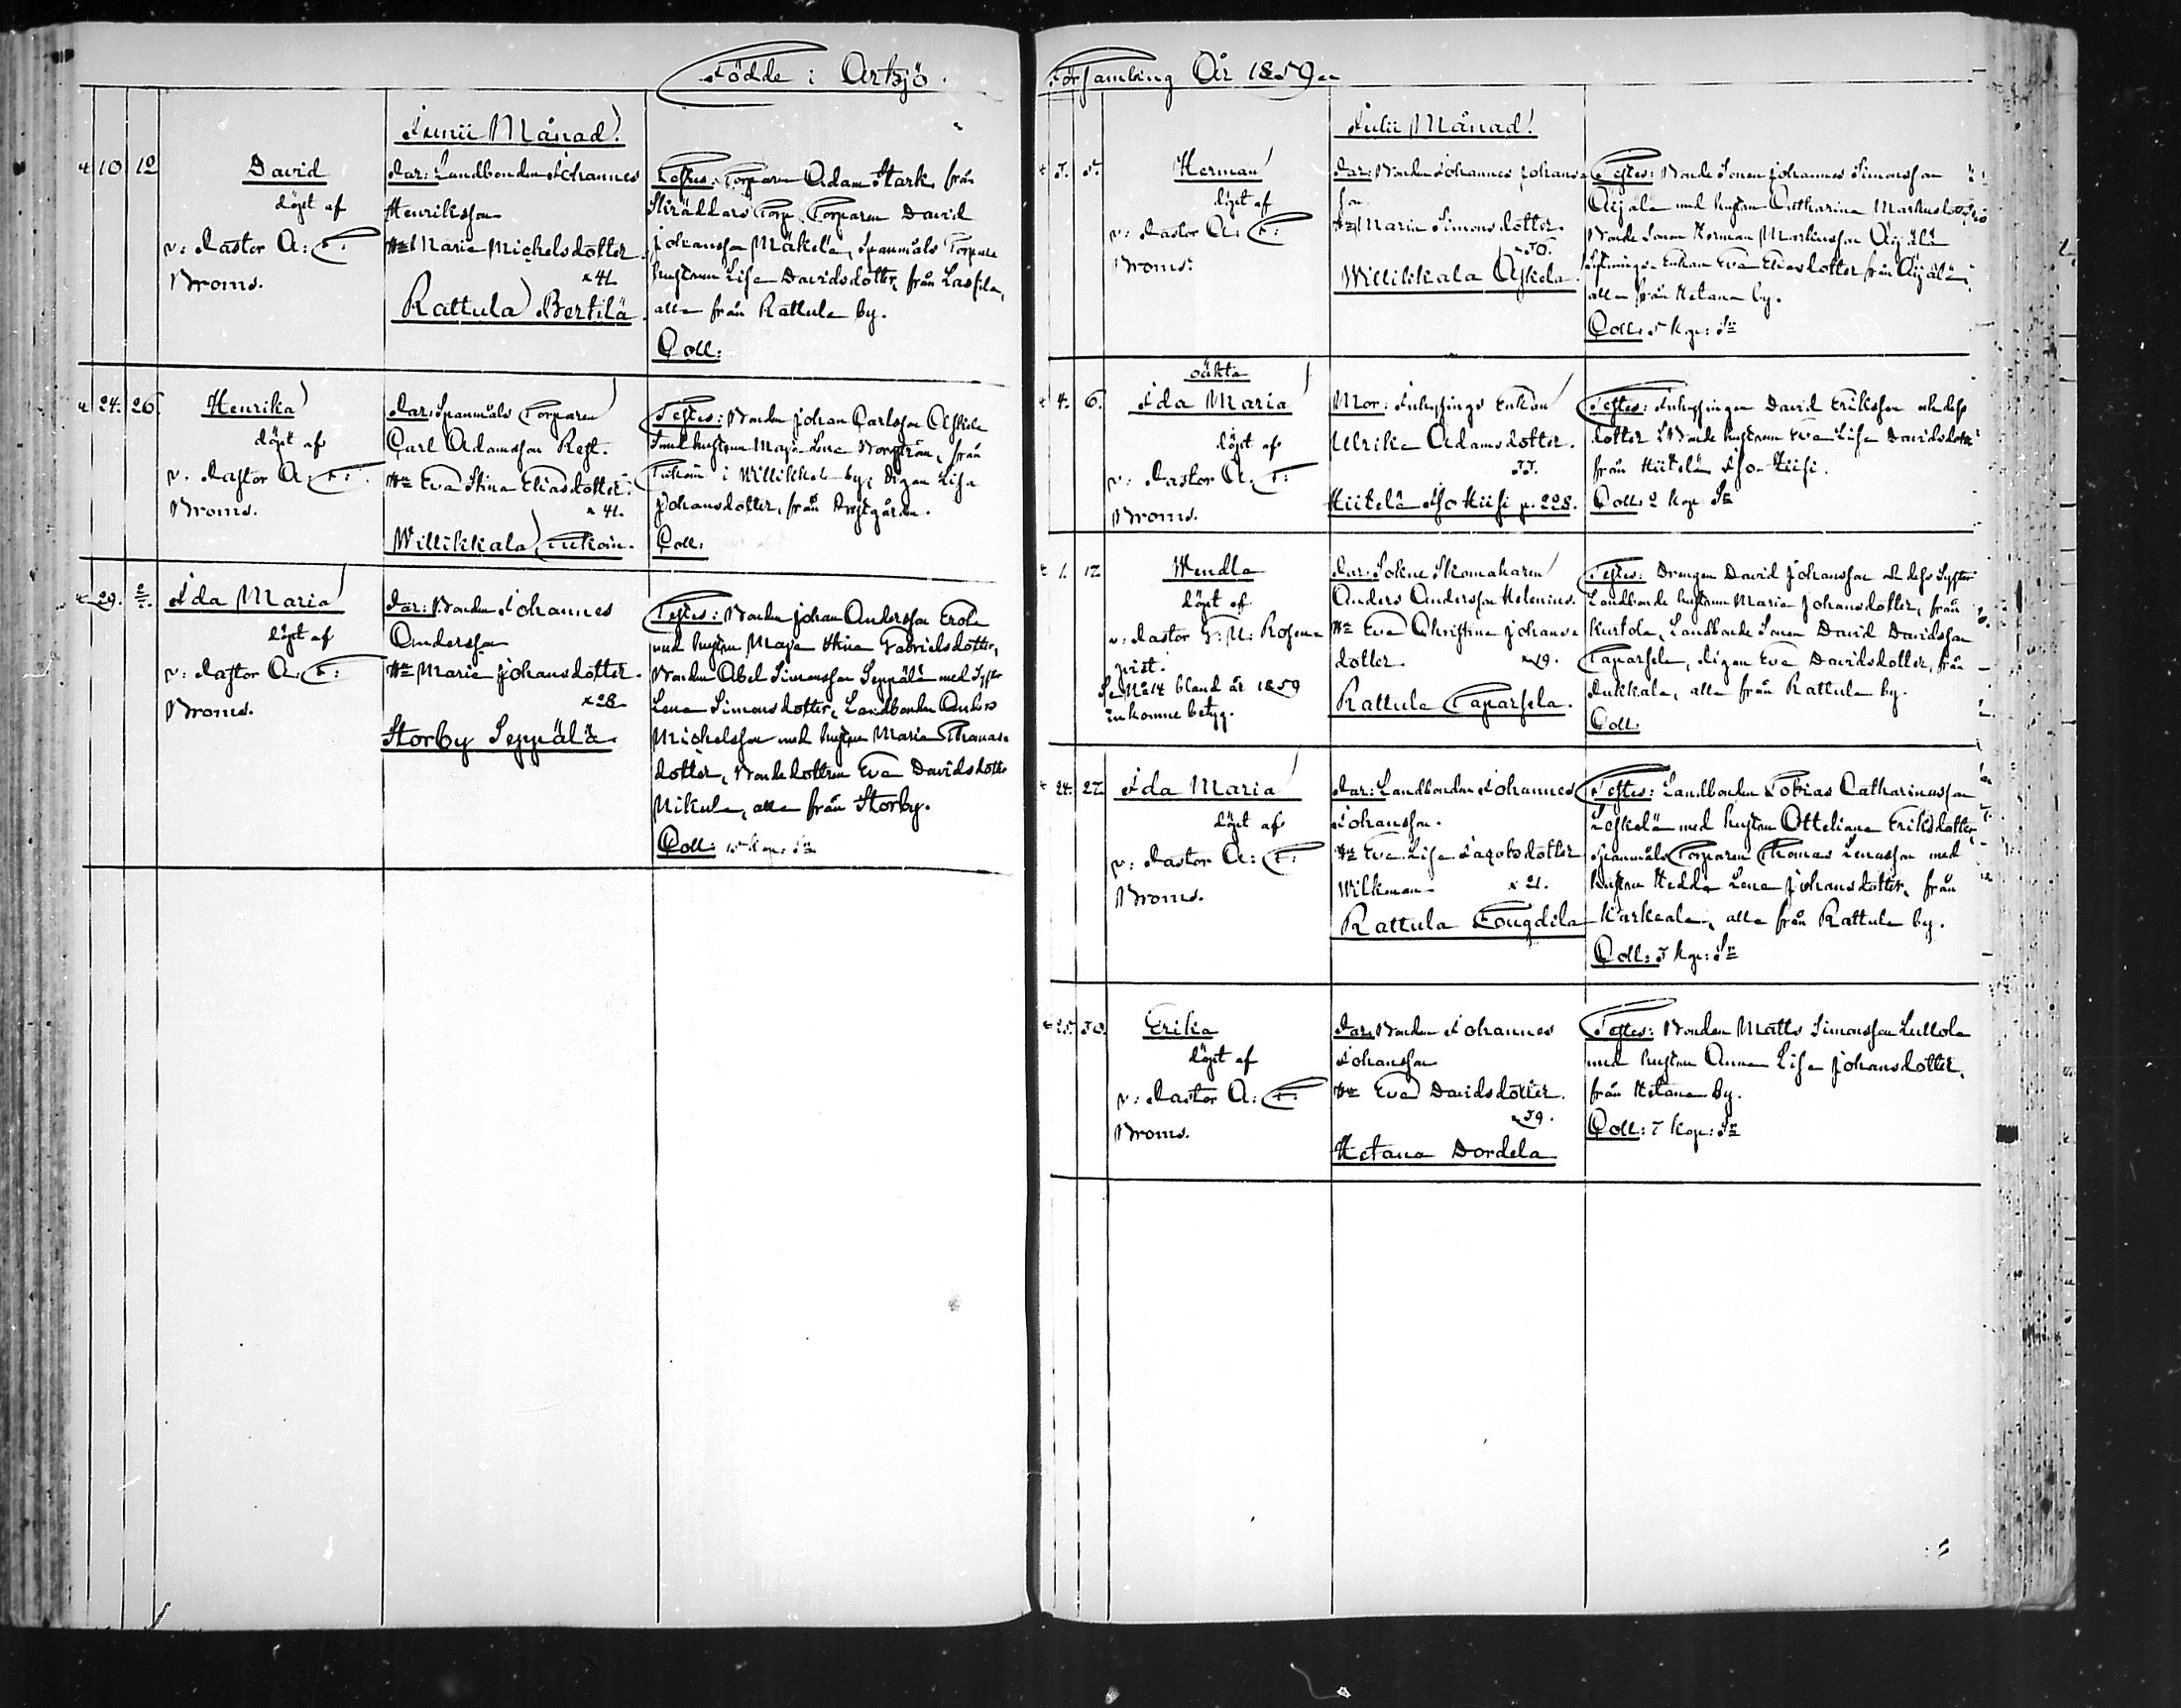 Födde i Artsjö
Junii Månad
10 12
David
döpt af
v: Pastor A: F:
Broms.
Par: Landbonden Johannes
Henriksson
Hu Maria Michelsdotter
41
Rattula Bertilä
Testes: Torparen Adam Stark, från
Skräddars Torp, Torparen David
Johansson Mäkelä, Spanmåls Torpare
hustrun Lisa Davidsdotter, från Lassila,
alla från Rattula by.
Coll:
24. 26
Henrika
döpt af
v. Pastor A: F:
Broms.
Par: Spanmåls Torparen
Carl Adamsson
Hu Eva Stina Eliasdotter
41.
Willikkala
Testes: Bonden Johan Carlsson
hustrun Maja Lena från
i Willikkala by, Pigan Lisa
Johansdotter, från Prestgården.
Coll:
29.
Ida Maria
döpt af
v: Pastor A: F:
Broms.
Par: Bonden Johannes
Andersson
Hu Maria Johansdotter.
28
Storby Seppälä
Testes: Bonden Johan Andersson Erola
med hustru Maja Stina Gabrielsdotter,
Bonden Abel Simonsson Seppälä med Syster
Lena Simonsdotter, Landbonden Anders
Michelsson med hustru Maria Thomas-
dotter, Bondedottren Eva Davidsdotter
Nikula, alla från Storby.
Coll: 15 Kop: Sr
Församling År 1859
Julii Månad
3. 5.
Herman
döpt af
v: Pastor A: F:
Broms.
Par: Bonden Johannes Johans-
son
Hu Maria Simonsdotter.
30.
Willikkala
Testes: Bonde Sonen Johannes Simonsson
Äijälä med hustru Catharina Markusdotter
Bonde Sonen Herman Martinsson Äijälä
Enkan Eva Eliasdotter från Äijälä,
alla från Hetana by.
Coll: 5 Kop: Sr
4. 6.
oäkta
Ida Maria
döpt af
v: Pastor A. F:
Broms.
Mor: Inhysings Enkan
Ulrika Adamsdotter.
33.
Hiitelä Iso Hiisi p. 228.
Testes: Inhysingen David Eriksson och dess
dotter Bonde hustrun Eva Lisa Davidsdotter
från Hiitelä Iso Hiisi.
Coll: 2 Kop Sr
1. 12
Wendla
döpt af
v: Pastor
Se No 14 bland år 1859
inkomne betyg.
Par: Sokne Skomakaren
Anders Andersson Helenius.
Hu Eva Christina Johans-
dotter.
29.
Rattula Taparsela.
Testes: Drengen David Johansson och dess Syster
Landbonde hustrun Maria Johansdotter, från
Kurtola, Landbonde Sonen David Davidsson
Taparsela, Pigan Eva Davidsdotter, från
Pukkala, alla från Rattula by.
Coll.
24. 27
Ida Maria
döpt af
v: Pastor A: F:
Broms.
Par: Landbonden Johannes
Johansson.
Hu Eva Lisa Jacobsdotter
Wilkman
21.
Rattula
Testes: Landbonden Tobias Catharinasson
med hustru Otteliana Eriksdotter,
Spanmåls Torparen Thomas Lenasson med
hustru Hedda Lena Johansdotter, från
Karkeala, alla från Rattula by.
Coll: 3 Kop: Sr
25. 30.
Erika
döpt af
v: Pastor A: F:
Broms.
Par: Bonden Johannes
Johansson
Hu Eva Davidsdotter.
39.
Hetana Dordela
Testes: Bonden Matts Simonsson Lullola
med hustru Anna Lisa Johansdotter,
från Hetana by.
Coll: 7 Kop: Sr